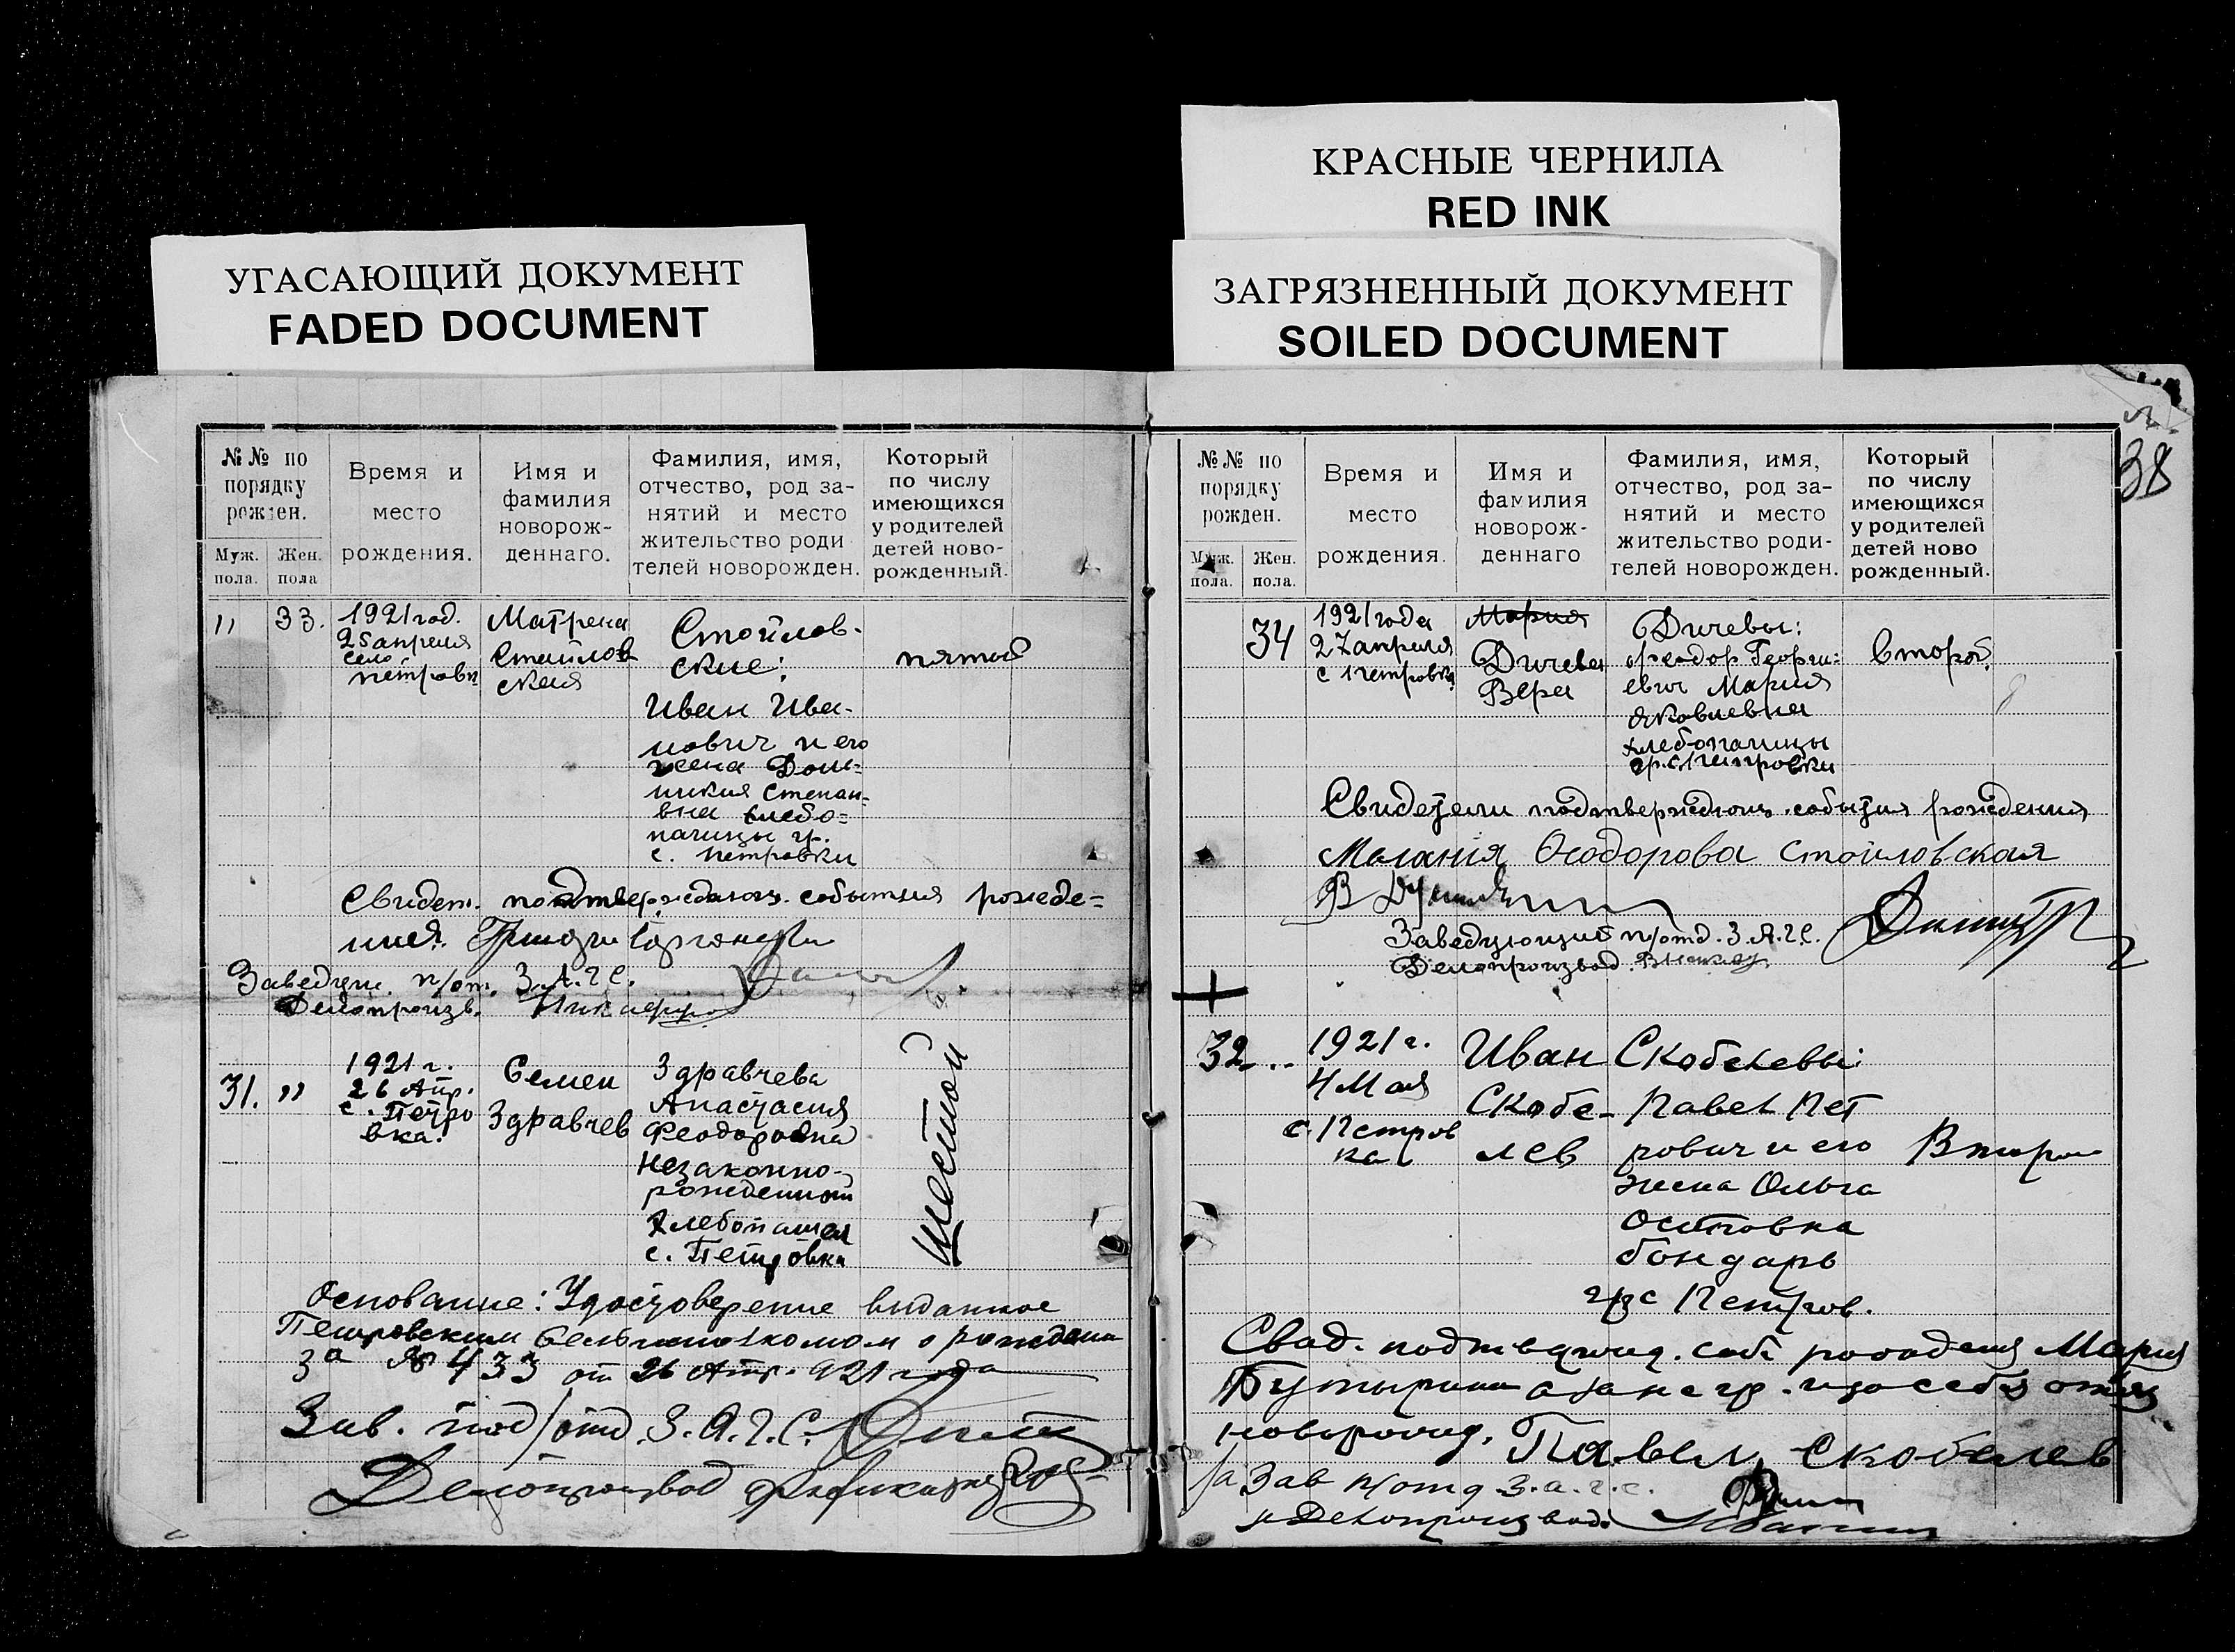 КРАСНЫЕ ЧЕРНИЛА
RED INK
УГАСАЮЩИЙ ДОКУМЕНТ
FADED DOCUMENT
ЗАГРЯЗНЕННЫЙ ДОКУМЕНТ
SOILED DOCUMENT
38
№№ по
порядку
рожден.
Муж.
пола.
Жен.
пола
Время и
место
рождения.
Имя и
фамилия
новорож-
деннаго.
Фамилия, имя,
отчество, род за-
нятий и место
жительство роди
телей новорожден.
Который
по числу
имеющихся
у родителей
детей ново-
рожденный.
" 33.
1921 год.
25 апреля
село
петровк
Матрена
Стоилов
ская
Стоилов-
ские:
Иван Ива-
нович и его
жена Дом-
никия Степан=
вна хлебо=
пашцы гр.
с. петровки
пятый
Свидет. подтверждающ. события рожде=
ния.
Заведующ. п/от. З.А.Г.С.
Делопроизв.
31. "
1921 г.
26 Апр.
с. Петро
вка.
Семен
Здравчев
Здравчева
Анастасия
Феодоровна
незаконно-
рожденный
Хлебопашец
с. Петровка
Шестой
Основание: Удостоверение выданное
Петровским о рождении
за № 433 от 26 Апр. 921 года
Зав. под/отд. З.А.Г.С.
Делопроизвод
№№ по
порядку
рожден.
Муж.
пола.
Жен.
пола.
Время и
место
рождения.
Имя и
фамилия
новорож-
деннаго
Фамилия, имя,
отчество, род за-
нятий и место
жительство роди-
телей новорожден.
Который
по числу
имеющихся
у родителей
детей ново
рожденный.
34
1921 года
27 апреля
с петровка
Мария
Дичева
Вера
Дичевы:
феодор Георги=
евич Мария
Яковлевна
хлебопашцы
гр. с. петровки
второй
Свидетели подтверждающ. события рождения
Мелания Феодорова Стоиловская
Заведующий п/отд. З.А.Г.С.
Делопроизвод.
32 ..
1921 г.
4 Мая
с. Петров
ка
Иван
Скобе-
лев
Скобелевы:
Павел Пет
рович и его
жена Ольга
Осиповна
бондарь
гр с Петров.
Второй
Свид. подтвержд. соб. рождения Мария
Бутырина а также гр.
новорожд. Павел Скобелев
За Зав п/отд З.а.г.с.
и Делопроизвод.